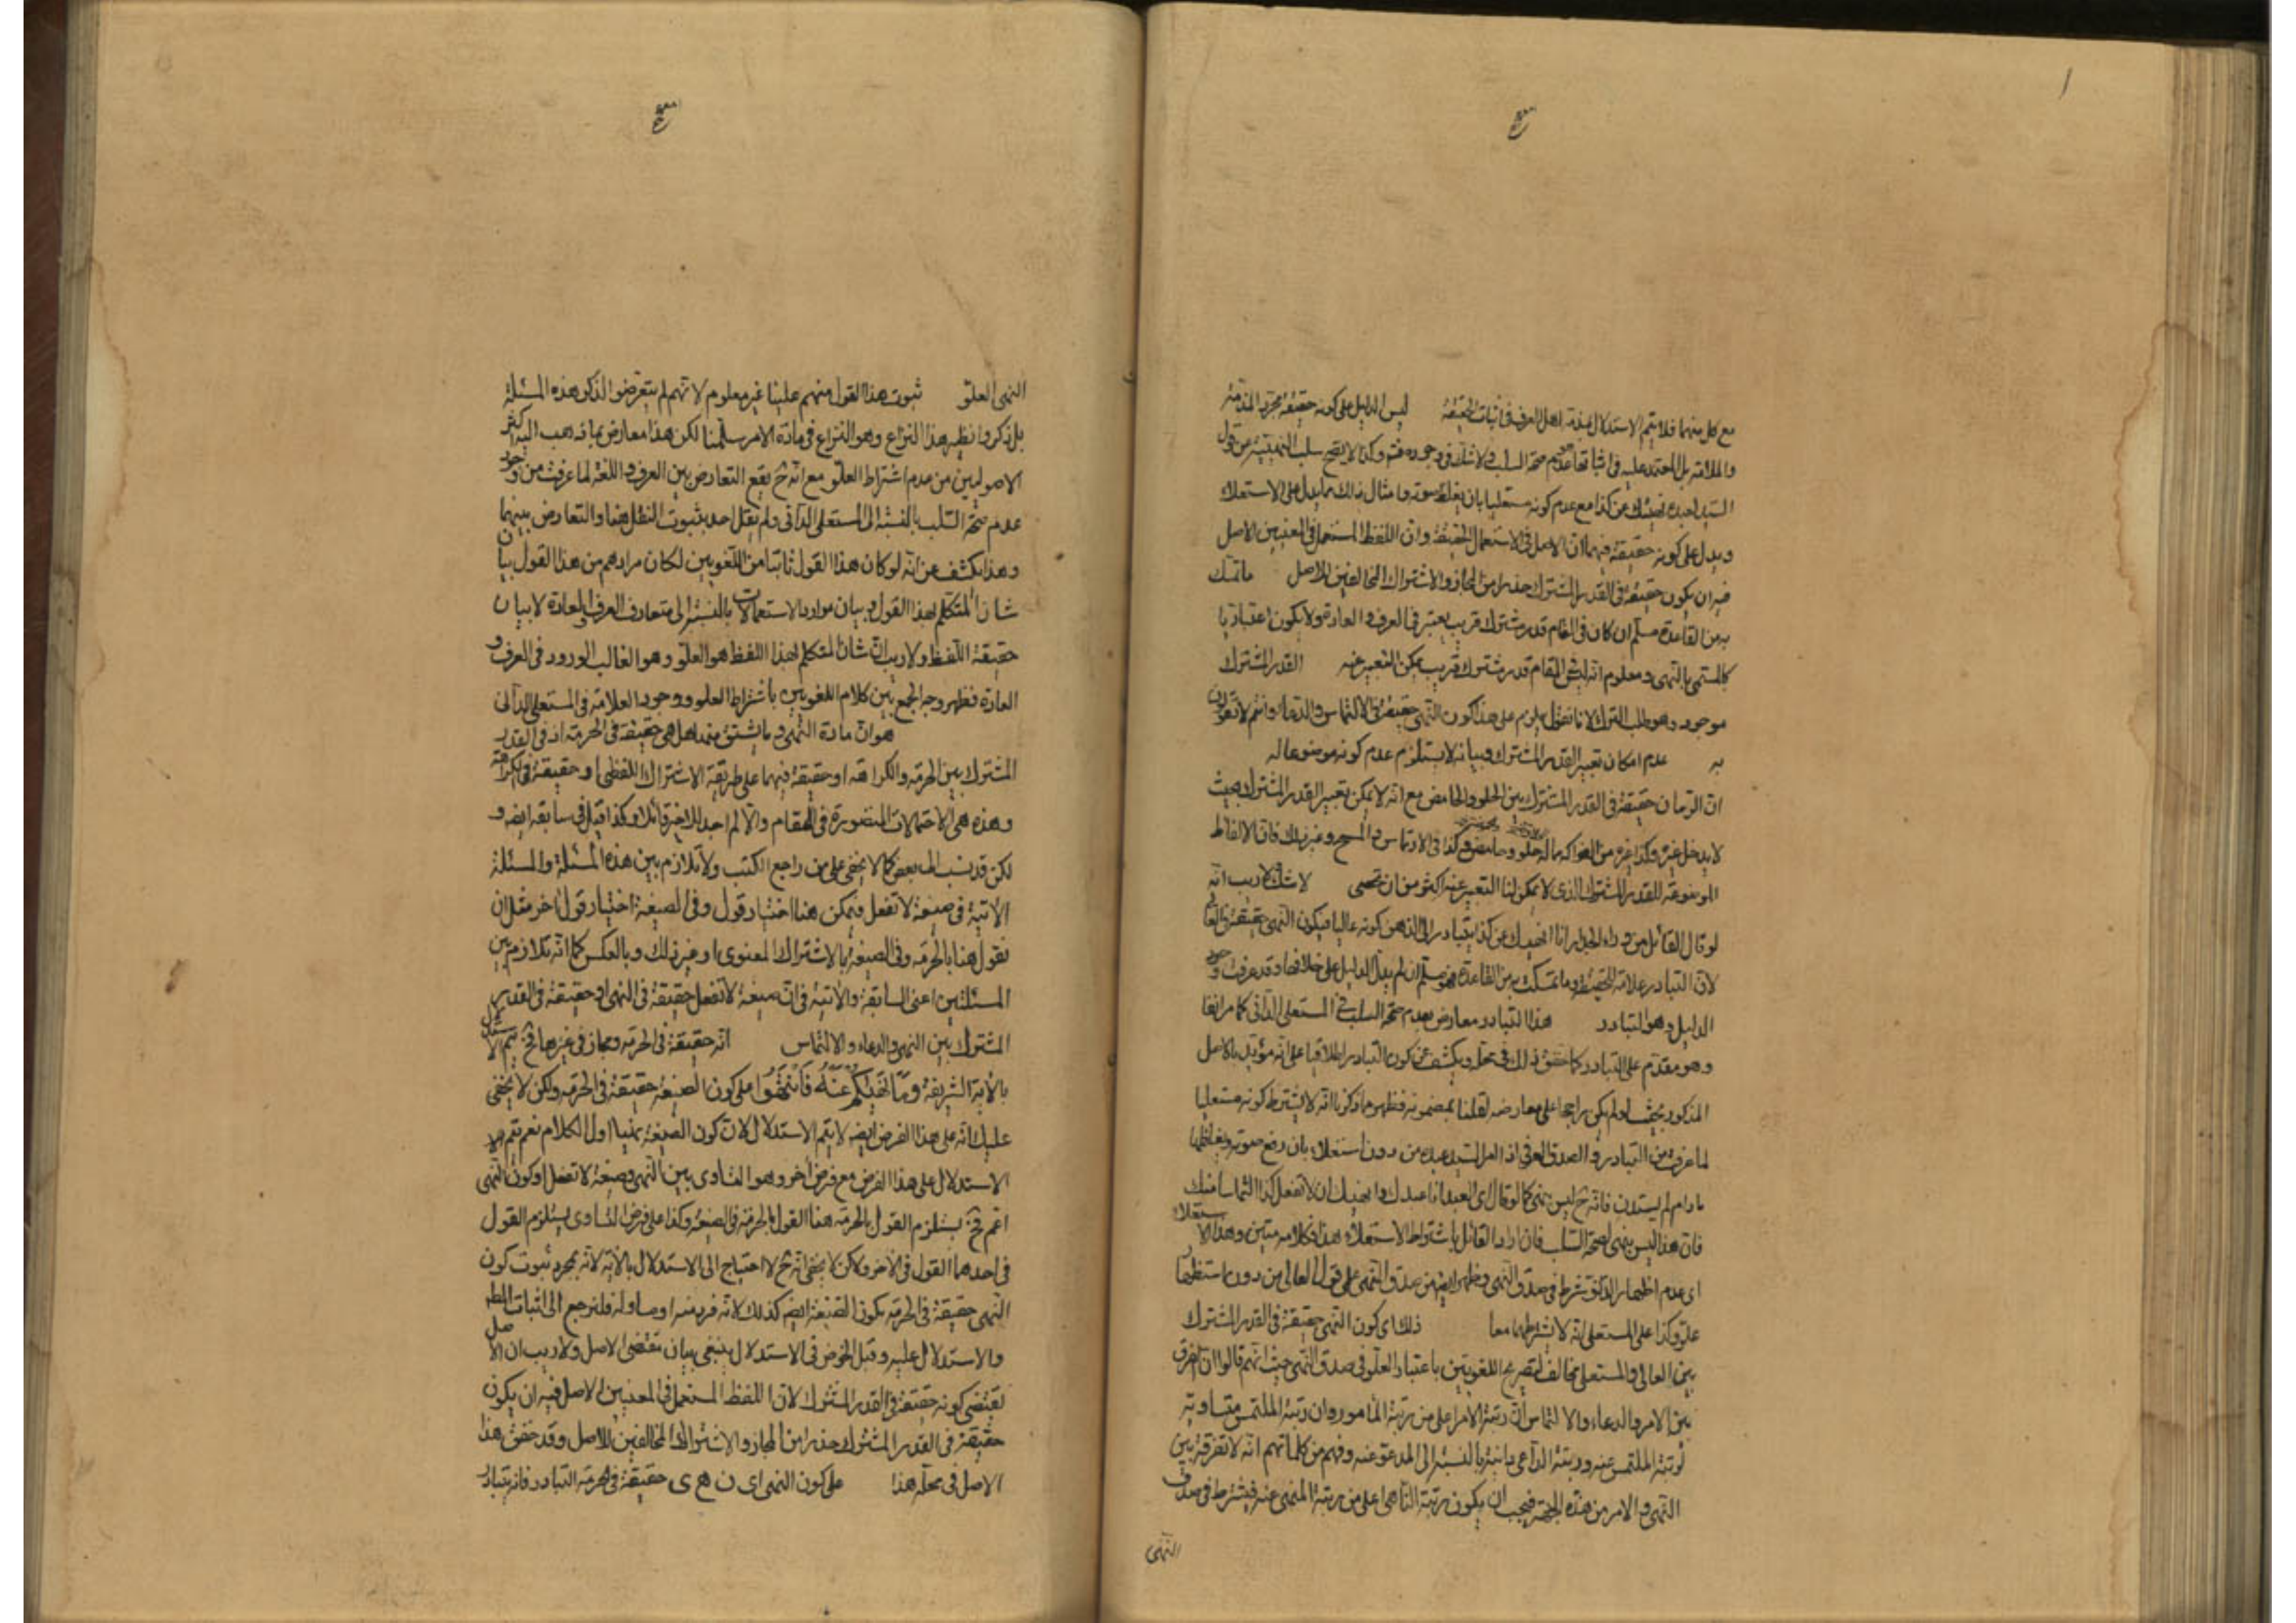 مع كل منهما فلا يتم الاستدلال عند اهل العرف في اثبات الحقيقة ليس الدليل على كونه حقيقة مجرد المذمة
والملامة بل المعتمد عليه في اثباتها عدم صحة السلب ولا شك في وجوده فيه وكذا لا يصح سلب النهي من قول
السيد لعبده نهيتك عن كذا مع عدم كونه مستعليا بان يغلظ صوته وامثال ذلك مما يدل على الاستعلاء
ويدل على كونه حقيقة فيهما ان الاصل في الاستعمال الحقيقة وان اللفظ المستعمل في المعنيين الاصل
فيه ان يكون حقيقة في القدر المشترك حذرا من المجاز والاشتراك المخالفين للاصل ما تمسك
به من القاعدة مسلم ان كان في المقام قدر مشترك قريب يعتبر في العرف والعادة ولا يكون اعتباريا
كالمسمى بالنهي ومعلوم انه ليس في المقام قدر مشترك قريب يمكن التعبير عنه القدر المشترك
موجود وهو طلب الترك لانا نقول يلزم على هذا كون النهي حقيقة في الالتماس والدعاء وانتم لا تقولون
به عدم امكان تعبير القدر المشترك وبيانه لا يستلزم عدم كونه موضوعا له
ان الرمان حقيقة في القدر المشترك بين الحلو والحامض مع انه لا يمكن تعبير القدر المشترك بحيث
لا يدخل غيره وكذا غيره من الفواكه ماله حلو وحامض وكذا في الارتماس والمسح وغير ذلك فان الالفاظ
الموضوعة للقدر المشترك الذي لا يمكن لنا التعبير عنه اكثر من ان تحصى لا شك ولا ريب انه
لو قال القائل من وراء الجدار انا انهيك عن كذا يتبادر الى الذهن كونه عاليا فيكون النهي حقيقة في العالي
لان التبادر علامة للحقيقة وما تمسكت به من القاعدة فهو مسلم ان لم يدل الدليل على خلافها وقد عرفت وجود
الدليل وهو التبادر هذا التبادر معارض بعدم صحة السلب في المستعلي الداني كما مر انفا
وهو مقدم على التبادر كما حقق ذلك في محله ويكشف عن كون التبادر اطلاقيا على انه مؤيد بالاصل
المذكور بحيث لو لم يكن راجحا على معارضه لقلنا بمضمونه فظهر مما ذكرنا انه لا يشترط كونه مستعليا
لما عرفت من التبادر والصدق العرفي اذا امر السيد عبده من دون استعلاء بان رفع صوته وبغلظها
ما دام لم يستدن فانه ح ليس نهي كما لو قال اي العبد انا عبدك وانهيك ان لا تفعل كذا التماسا منك
فان هذا ليس بنهي لصحة السلب فان اراد القائل باشتراط الاستعلاء هذا فكلامه متين وهذا الاستعلاء
اي عدم اظهار الدنو شرط في صدق النهي وظهر ايضا من صدق النهي على قول العالي من دون استظهار
علو وكذا على المستعلي انه لا يشترطهما معا ذلك اي كون النهي حقيقة في القدر المشترك
بين العالي والمستعلي مخالف لتصريح اللغويين باعتبار العلو في صدق النهي حيث انهم قالوا ان الفرق
بين الامر والدعاء والالتماس ان رتبة الامر اعلى من رتبة المامور وان رتبة الملتمس متساوية
لرتبة الملتمس عنه ورتبة الداعي دانية بالنسبة الى المدعو عنه وفهم من كلماتهم انه لا تفرقة بين
النهي والامر من هذه الجهة فيجب ان يكون رتبة الناهي اعلى من رتبة المنهي عنه فيشترط في صدق
النهي
النهي العلو ثبوت هذا القول منهم علينا غير معلوم لانهم لم يتعرضوا لذكر هذه المسئلة
بل ذكروا نظير هذا النزاع وهو النزاع في مادة الامر سلمنا لكن هذا معارض بما ذهب اليه اكثر
الاصوليين من عدم اشتراط العلو مع انه ح يقع التعارض بين العرف واللغة لما عرفت من وجود
عدم صحة السلب بالنسبة الى المستعلي الداني ولم يقل احد بثبوت النقل هنا والتعارض بينهما
وهذا يكشف عن انه لو كان هذا القول ثابتا من اللغويين لكان مرادهم من هذا القول بيان
شان المتكلم لهذا القول وبيان موارد الاستعمالات بالنسبة الى متعارف العرف والعادة لا بيان
حقيقة اللفظ ولا ريب ان شان المتكلم لهذا اللفظ هو العلو وهو الغالب الورود في العرف و
العادة فظهر وجه الجمع بين كلام اللغويين باشتراط العلو ووجود العلامة في المستعلي الداني
هو ان مادة النهي وما يشتق منه هل هي حقيقة في الحرمة او في القدر
المشترك بين الحرمة والكراهة او حقيقة فيهما على طريقة الاشتراك اللفظي او حقيقة في الكراهة
وهذه هي الاحتمالات المتصورة في المقام والا لم احد للاخير قائلا وكذا قيل في سابقه ايضه و
لكن قد نسب الى بعض كما لا يخفى على من راجع الكتب ولا تلازم بين هذه المسئلة والمسئلة
الاتية في صيغة لا تفعل ويمكن هنا اختيار قول وفي الصيغة اختيار قول اخر مثل ان
نقول هنا بالحرمة وفي الصيغة بالاشتراك المعنوي او غير ذلك وبالعكس كما انه تلازم بين
المسئلتين اعني السابقة والاتية في ان صيغة لا تفعل حقيقة في النهي او حقيقة في القدر
المشترك بين النهي والدعاء والالتماس انه حقيقة في الحرمة ومجاز في غيرها فح يتم الاستدلال
بالاية الشريفة وما نهيكم عنه فانتهوا على كون الصيغة حقيقة في الحرمة ولكن لا يخفى
عليك انه على هذا الفرض ايضه لا يتم الاستدلال لان كون الصيغة نهيا اول الكلام نعم يتم
الاستدلال على هذا الفرض مع فرض اخر وهو التساوي بين النهي وصيغة لا تفعل او كون النهي
اعم فح يستلزم القول بالحرمة هنا القول بالحرمة في الصيغة وكذا على فرض التساوي يستلزم القول
في احدهما القول في الاخر ولكن لا يخفى انه ح لا احتياج الى الاستدلال بالاية لانه بمجرد ثبوت كون
النهي حقيقة في الحرمة يكون الصيغة ايضه كذلك لانه فرد منه او مساو له فلنرجع الى اثبات المطلب
والاستدلال عليه وقبل الخوض في الاستدلال ينبغي بيان مقتضى الاصل ولا ريب ان الاصل
يقتضي كونه حقيقة في القدر المشترك لان اللفظ المستعمل في المعنيين الاصل فيه ان يكون
حقيقة في القدر المشترك حذرا من المجاز والاشتراك المخالفين للاصل وقد حقق هذا
الاصل في محله هذا على كون النهي اي ن ه ى حقيقة في الحرمة التبادر فانه يتبادر